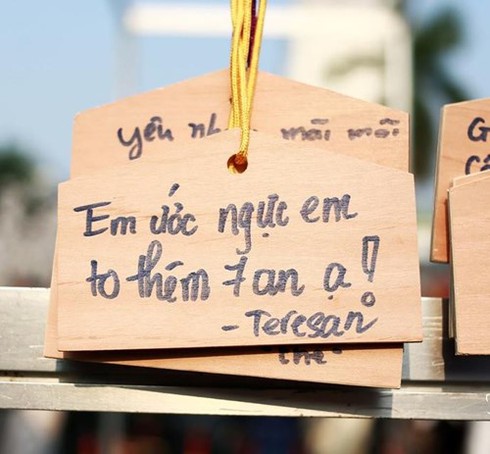 Yêu mãi mãi
Em ước ngực em
to thêm 7 an ạ!
- Teresan